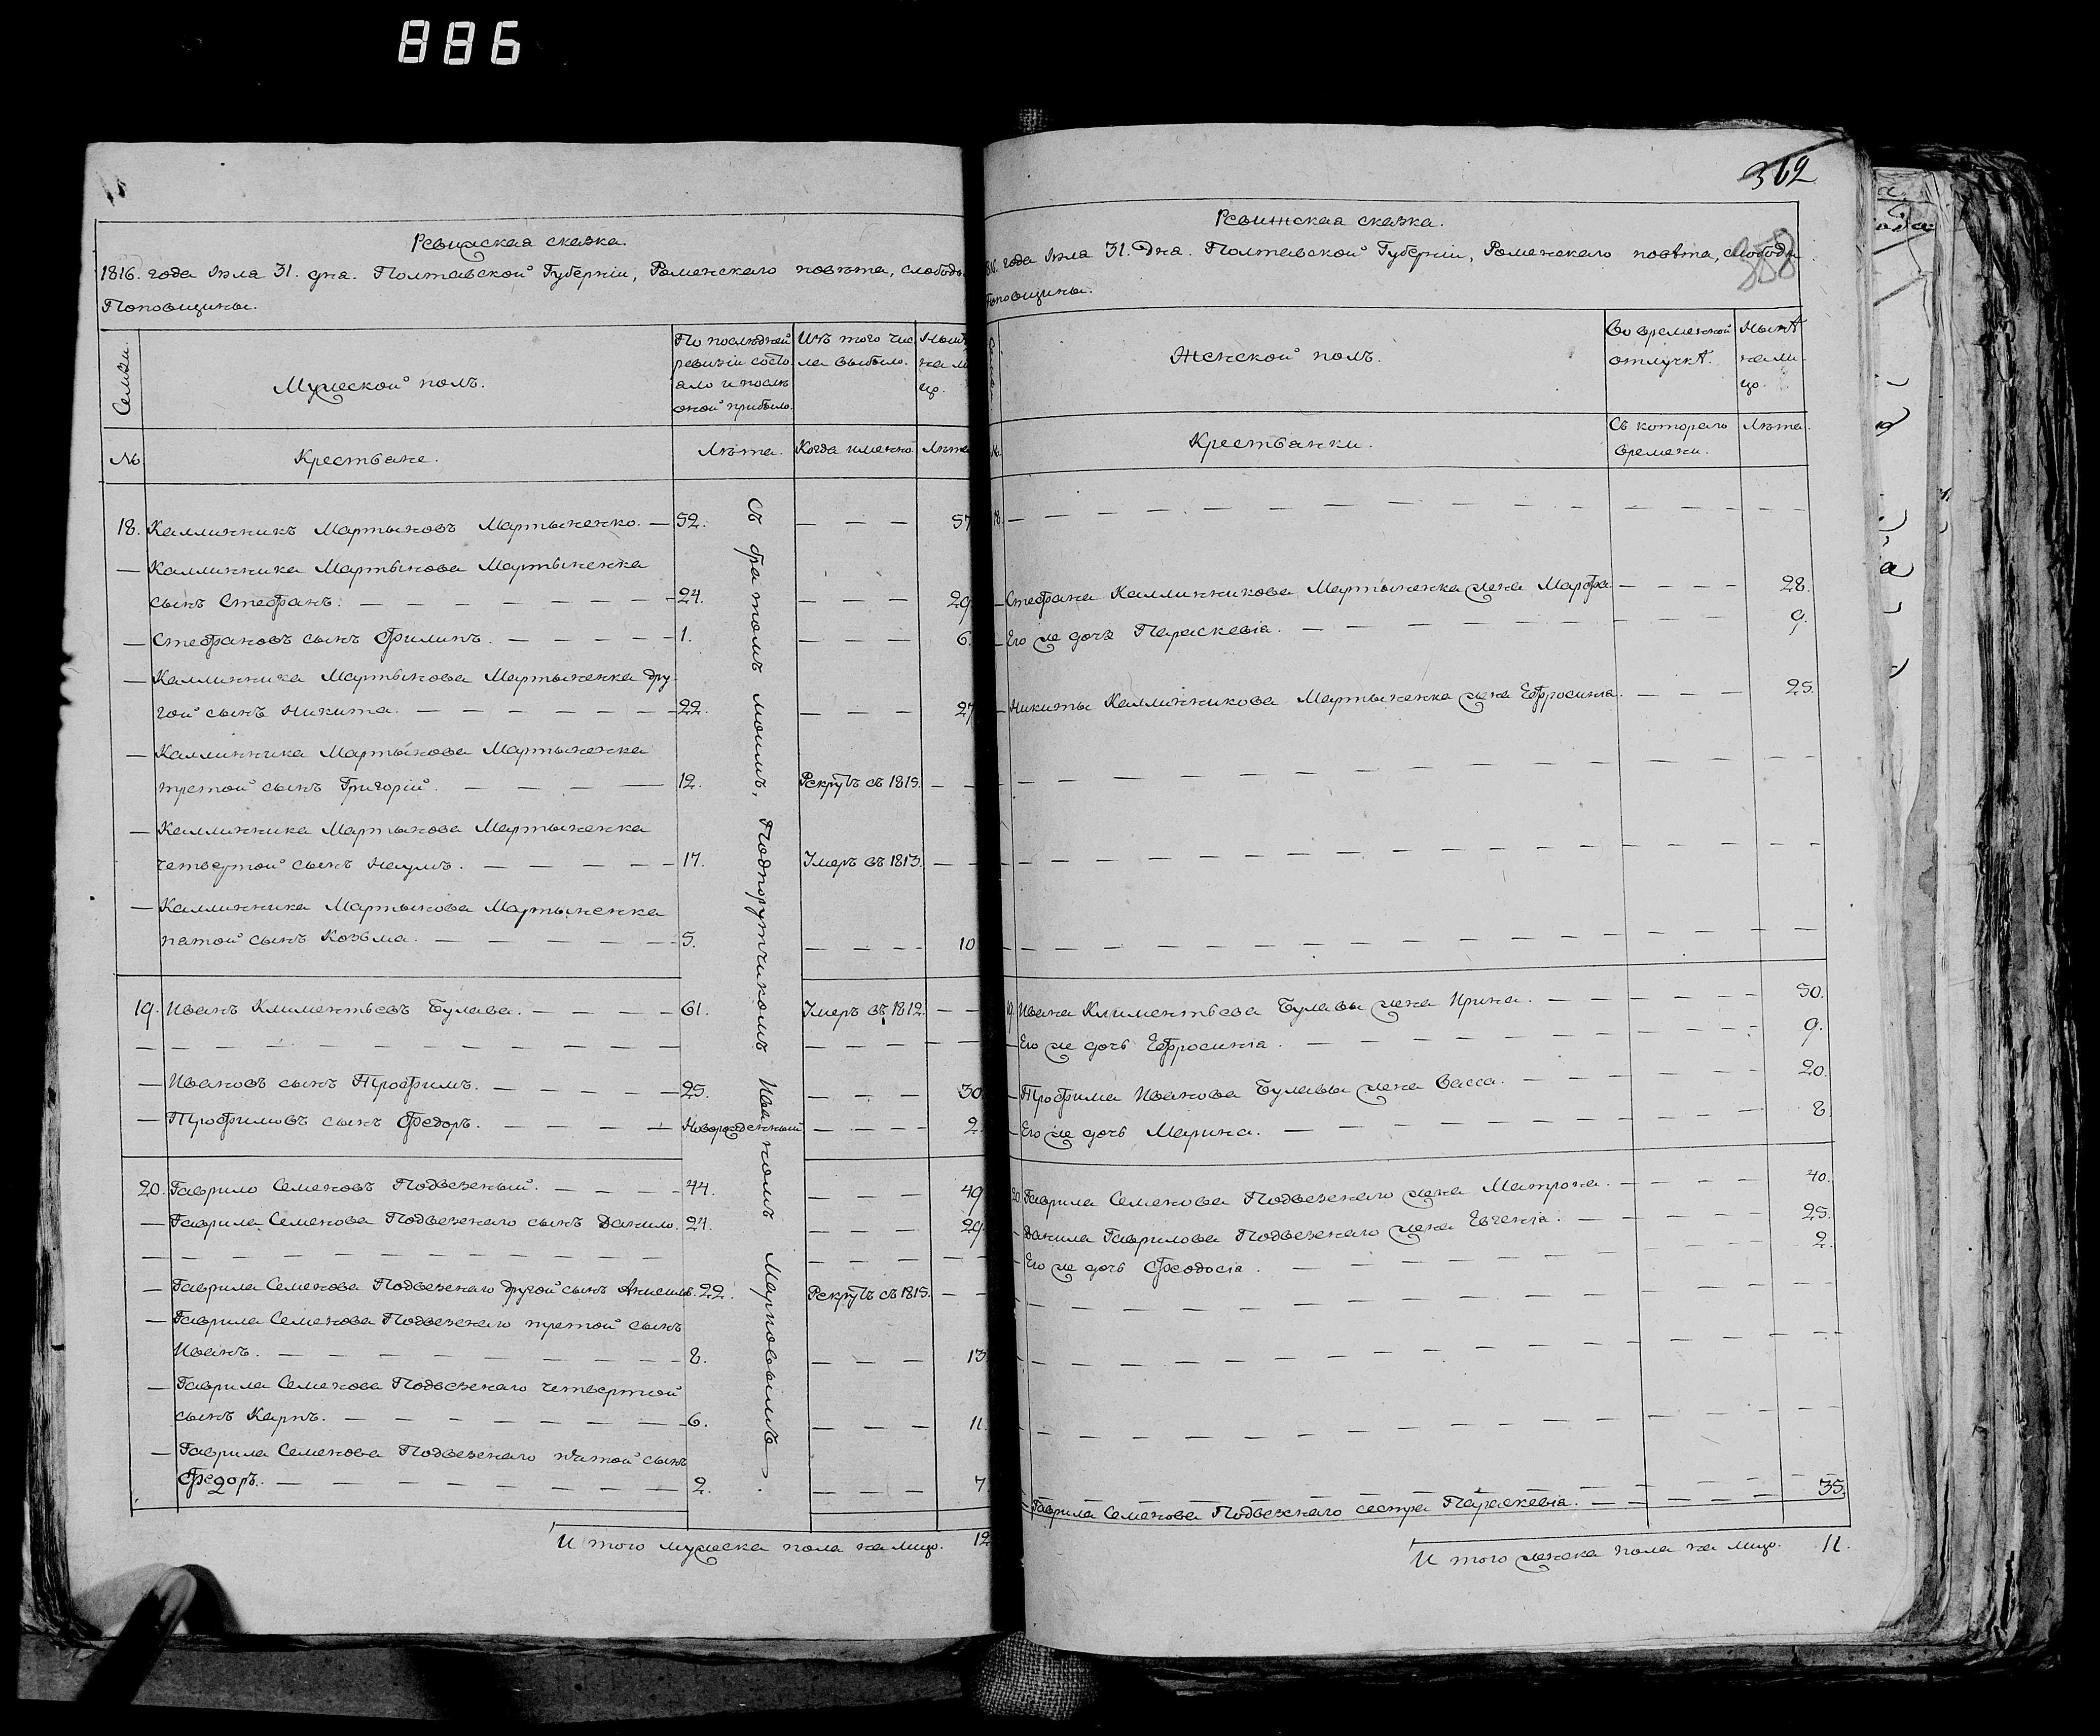 886
Ревижская сказка.
1816. года Июля 31. дня. Полтавской Губерніи, Роменскаго повѣта, слободы
Поповщины.
Семьи.
Мужеской полъ.
По послѣдней
ревизіи состо
яло и послѣ
оной прибыло.
Изъ того чис
ла выбыло.
Нынѣ
на ли
цо.
№
Крестьяне.
Лѣта.
Когда именно.
Лѣта
18. Каллиникъ Мартыновъ Мартыненко. — 52. — — — 57
— Каллиника Мартынова Мартыненка
сынъ Стефанъ. — 24. — — — 29
— Стефановъ сынъ Филипъ. — 1. — — — 6.
— Каллиника Мартынова Мартыненка дру-
гой сынъ Никита. — 22. — — — 27
— Каллиника Мартынова Мартыненка
третой сынъ Григорій. — 12. Рекрутъ съ 1815. — —
— Каллиника Мартынова Мартыненка
четвертой сынъ Наумъ. — 17. Умеръ въ 1813. — —
— Каллиника Мартынова Мартыненка
пятой сынъ Козьма. — 5. — — — 10
19. Иванъ Климентьевъ Булава. — 61. Умеръ въ 1812. — —
— Ивановъ сынъ Трофимъ. — 25. — — — 30
— Трофимовъ сынъ Федоръ. — Новорожденный — — — 2
20. Гаврило Семеновъ Подвезный. — 44. — — — 49
— Гаврила Семенова Подвезнаго сынъ Данило. 24. — — — 29.
— Гаврила Семенова Подвезнаго другой сынъ Анисимъ. 22. Рекрутъ съ 1815. — —
— Гаврила Семенова Подвезнаго третой сынъ
Иванъ. — 8. — — — 13
— Гаврила Семенова Подвезнаго четвертой
сынъ Карпъ. — 6. — — — 11.
— Гаврила Семенова Подвезнаго пятой сынъ
Федоръ. — 2. — — — 7
Съ братомъ моимъ, Подпорутчикомъ Иваномъ Марковымъ.
И того мужеска пола на лицо. 12
362
358
Ревижская сказка.
1816. года Июля 31. Дня. Полтавской Губерніи, Роменскаго повѣта, слободы
Поповщины.
Семьи.
Женской полъ.
Во временной
отлучкѣ.
Нынѣ
на ли-
цо.
№.
Крестьянки.
Съ котораго
времени.
Лѣта.
18. — — —
— Стефана Каллиникова Мартыненка жена Марфа — — — 28.
— Его же дочь Параскевіа. — — — 9.
— Никиты Каллиникова Мартыненка жена Ефросиніа. — — — 25.
19. Ивана Климентьева Булавы жена Ирина. — — — 50.
— Его же дочь Ефросиніа. — — — 9.
— Трофима Иванова Булавы жена Васса. — — — 20.
— Его же дочь Марина. — — — 8.
20. Гаврила Семенова Подвезнаго жена Матрона. — — — 40.
— Данила Гаврилова Подвезнаго жена Евгеніа. — — — 25.
— Его же дочь Феодосіа. — — — 2.
— Гаврила Семенова Подвезнаго сестра Параскевіа. — — — 35.
И того женска пола на лицо. 11.